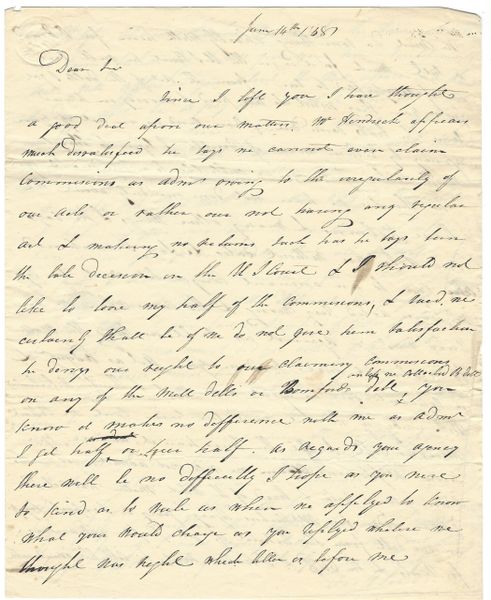 June 14th 1868
Dear Sir
Since I left you I have thought
a good deal upon our matters. Mr Hendrick appears
much dissatisfied he says we cannot even claim
Commissions as admr owing to the irregularity of
our acts or rather our not having any regular
act & making no returns such has he says been
the late decision in the U S Court & I should not
like to loose my half of the Commissions, & sued. we
certainly shall be if we do not give him satisfaction
he denys our right to our claiming Commissions
on any of the Mill debts or debt, you
know it makes no difference with me as admr
I get half or your half. as regards your agency
there will be no difficulty I hope as you were
so kind as to write us when we applyed to know
what you would charge us you replyed whatever we
thought was right which letter is before me